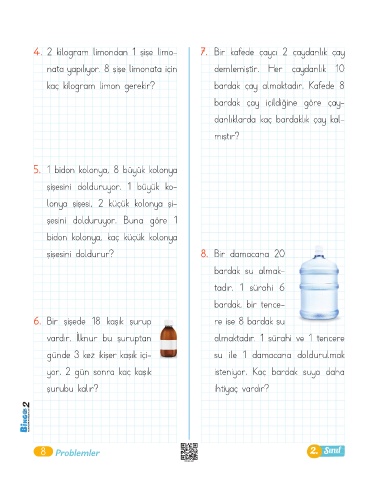 4. 2 kilogram limondan 1 şişe limo-
nata yapılıyor. 8 şişe limonata için
kaç kilogram limon gerekir?
5. 1 bidon kolonya, 8 büyük kolonya
şişesini dolduruyor. 1 büyük ko-
lonya şişesi, 2 küçük kolonya şi-
şesini dolduruyor. Buna göre 1
bidon kolonya, kaç küçük kolonya
şişesini doldurur?
6. Bir şişede 18 kaşık şurup
vardır. İlknur bu şuruptan
günde 3 kez ikişer kaşık içi-
yor. 2 gün sonra kaç kaşık
şurubu kalır?
7. Bir kafede çaycı 2 çaydanlık çay
demlemiştir. Her çaydanlık 10
bardak çay almaktadır. Kafede 8
bardak çay içildiğine göre çay-
danlıklarda kaç bardaklık çay kal-
mıştır?
8. Bir damacana 20
bardak su almak-
tadır. 1 sürahi 6
bardak, bir tence-
re ise 8 bardak su
almaktadır. 1 sürahi ve 1 tencere
su ile 1 damacana doldurulmak
isteniyor. Kaç bardak suya daha
ihtiyaç vardır?
BİNGO 2
8 Problemler
2. Sınıf